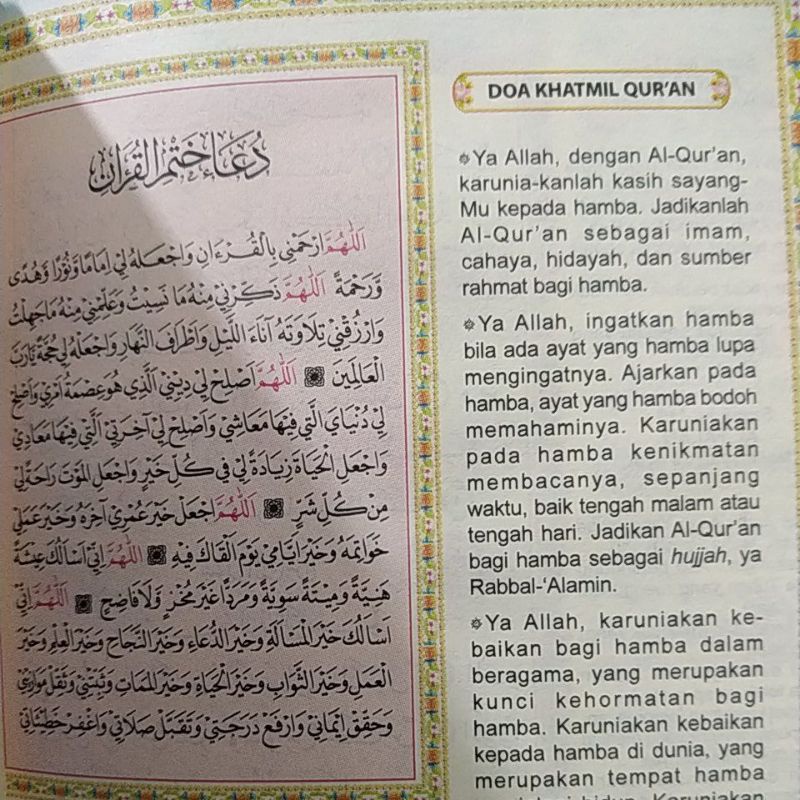 دُعَاءُ خَتْمِ الْقُرْآنِ
اَللّٰهُمَّ ارْحَمْنِيْ بِالْقُرْءَانِ وَاجْعَلْهُ لِيْ اِمَامًا وَّنُوْرًا وَّهُدًى
وَّرَحْمَةً اَللّٰهُمَّ ذَكِّرْنِيْ مِنْهُ مَا نَسِيْتُ وَعَلِّمْنِيْ مِنْهُ مَا جَهِلْتُ
وَارْزُقْنِيْ تِلَاوَتَهُ آنَاءَ اللَّيْلِ وَاَطْرَافَ النَّهَارِ وَاجْعَلْهُ لِيْ حُجَّةً يَارَبَّ
الْعَالَمِيْنَ اَللّٰهُمَّ اَصْلِحْ لِيْ دِيْنِيْ الَّذِيْ هُوَ عِصْمَةُ اَمْرِيْ وَاَصْلِحْ
لِيْ دُنْيَايَ الَّتِيْ فِيْهَا مَعَاشِيْ وَاَصْلِحْ لِيْ آخِرَتِيْ الَّتِيْ فِيْهَا مَعَادِيْ
وَاجْعَلِ الْحَيَاةَ زِيَادَةً لِيْ فِيْ كُلِّ خَيْرٍ وَاجْعَلِ الْمَوْتَ رَاحَةً لِيْ
مِنْ كُلِّ شَرٍّ اَللّٰهُمَّ اجْعَلْ خَيْرَ عُمْرِيْ آخِرَهُ وَخَيْرَ عَمَلِيْ
خَوَاتِمَهُ وَخَيْرَ اَيَّامِيْ يَوْمَ اَلْقَاكَ فِيْهِ اَللّٰهُمَّ اِنِّيْ اَسْأَلُكَ عِيْشَةً
هَنِيَّةً وَمِيْتَةً سَوِيَّةً وَمَرَدًّا غَيْرَ مُخْزٍ وَلَا فَاضِحٍ اَللّٰهُمَّ اِنِّيْ
اَسْأَلُكَ خَيْرَ الْمَسْأَلَةِ وَخَيْرَ الدُّعَاءِ وَخَيْرَ النَّجَاحِ وَخَيْرَ الْعِلْمِ وَخَيْرَ
الْعَمَلِ وَخَيْرَ الثَّوَابِ وَخَيْرَ الْحَيَاةِ وَخَيْرَ الْمَمَاتِ وَثَبِّتْنِيْ وَثَقِّلْ مَوَازِيْنِيْ
وَحَقِّقْ اِيْمَانِيْ وَارْفَعْ دَرَجَتِيْ وَتَقَبَّلْ صَلَاتِيْ وَاغْفِرْ خَطِيْئَاتِيْ
DOA KHATMIL QUR'AN
Ya Allah, dengan Al-Qur'an,
karunia-kanlah kasih sayang-
Mu kepada hamba. Jadikanlah
Al-Qur'an sebagai imam,
cahaya, hidayah, dan sumber
rahmat bagi hamba.
Ya Allah, ingatkan hamba
bila ada ayat yang hamba lupa
mengingatnya. Ajarkan pada
hamba, ayat yang hamba bodoh
memahaminya. Karuniakan
pada hamba kenikmatan
membacanya, sepanjang
waktu, baik tengah malam atau
tengah hari. Jadikan Al-Qur'an
bagi hamba sebagai hujjah, ya
Rabbal-'Alamin.
Ya Allah, karuniakan ke-
baikan bagi hamba dalam
beragama, yang merupakan
kunci kehormatan bagi
hamba. Karuniakan kebaikan
kepada hamba di dunia, yang
merupakan tempat hamba
hidup. Karuniakan